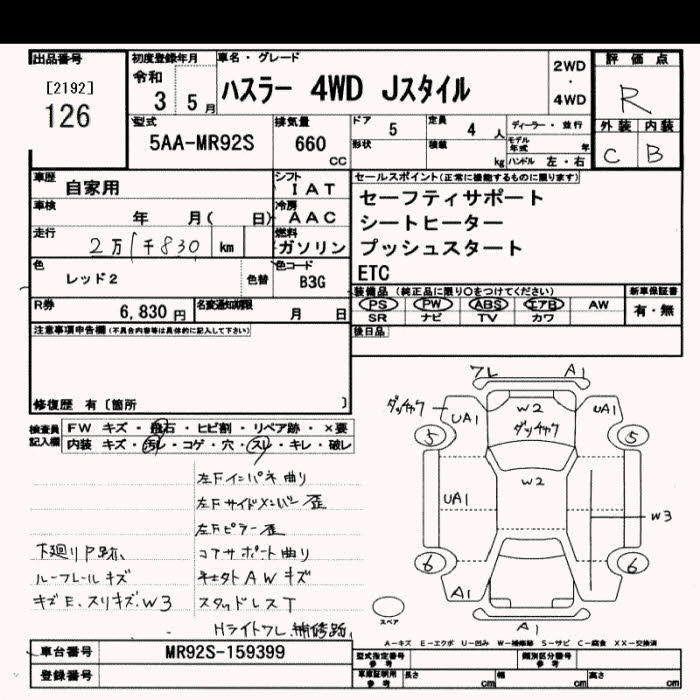 出品番号
[2192]
126
初度登録年月
令和
3 5 月
車名・グレード
ハスラー 4WD Jスタイル
2WD
・
4WD
評価点
R
外装 内装
C B
型式
5AA-MR92S
排気量
660
CC
ドア 5
定員 4 人
形状
積載 kg
ディーラー・並行
モデル年式 年
ハンドル 左・右
車歴 自家用
シフト IAT
車検 年 月( 日)
冷房 AAC
走行 2万1千830 km
燃料 ガソリン
色 レッド2
色替
色コード B3G
R券 6,830 円
名変通知期限 月 日
セールスポイント(正常に機能するものに限ります)
セーフティサポート
シートヒーター
プッシュスタート
ETC
装備品(純正品に限り○をつけてください)
PS PW ABS エアB AW
SR ナビ TV カワ
新車保証書
有・無
後日品
注意事項申告欄(不具合内容等は具体的に記入して下さい)
修復歴 有〔箇所 〕
検査員記入欄
FW キズ・飛石・ヒビ割・リペア跡・×要
内装 キズ・汚レ・コゲ・穴・スレ・キレ・破レ
左Fインパネ曲り
左Fサイドメンバー歪
左Fピラー歪
下廻りP跡、
コアサポート曲り
ルーフレールキズ
社外AWキズ
キズE、スリキズ、W3
スタッドレスT
Hライトワレ、補修跡、
ワレ A1
ダッチャク UA1 W2 UA1
ダッチャク
5 5
W2
UA1
W3
6 6
A1
A1
スペア
A-キズ E-エクボ U-凹み W-補修跡 S-サビ C-腐食 XX-交換済
車台番号 MR92S-159399
登録番号
型式指定番号 参考
類別区分番号 参考
車庫証明用 参考
長さ cm
幅 cm
高さ cm